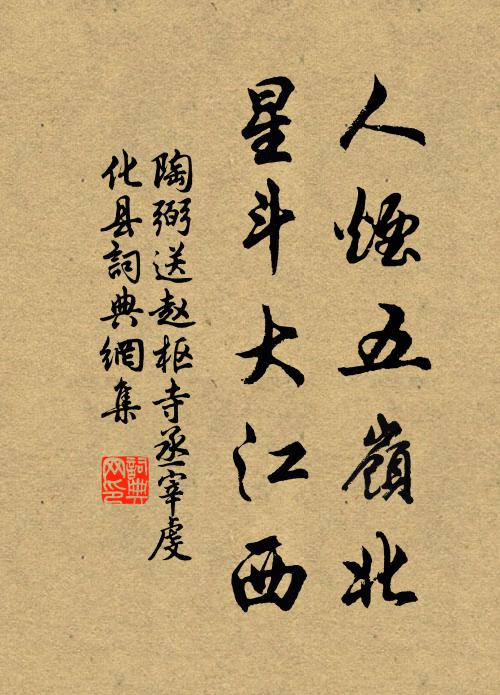 人煙五嶺北
星斗大江西
陶弼送赵枢寺丞宰虔
化县詞典網集
詞典網印